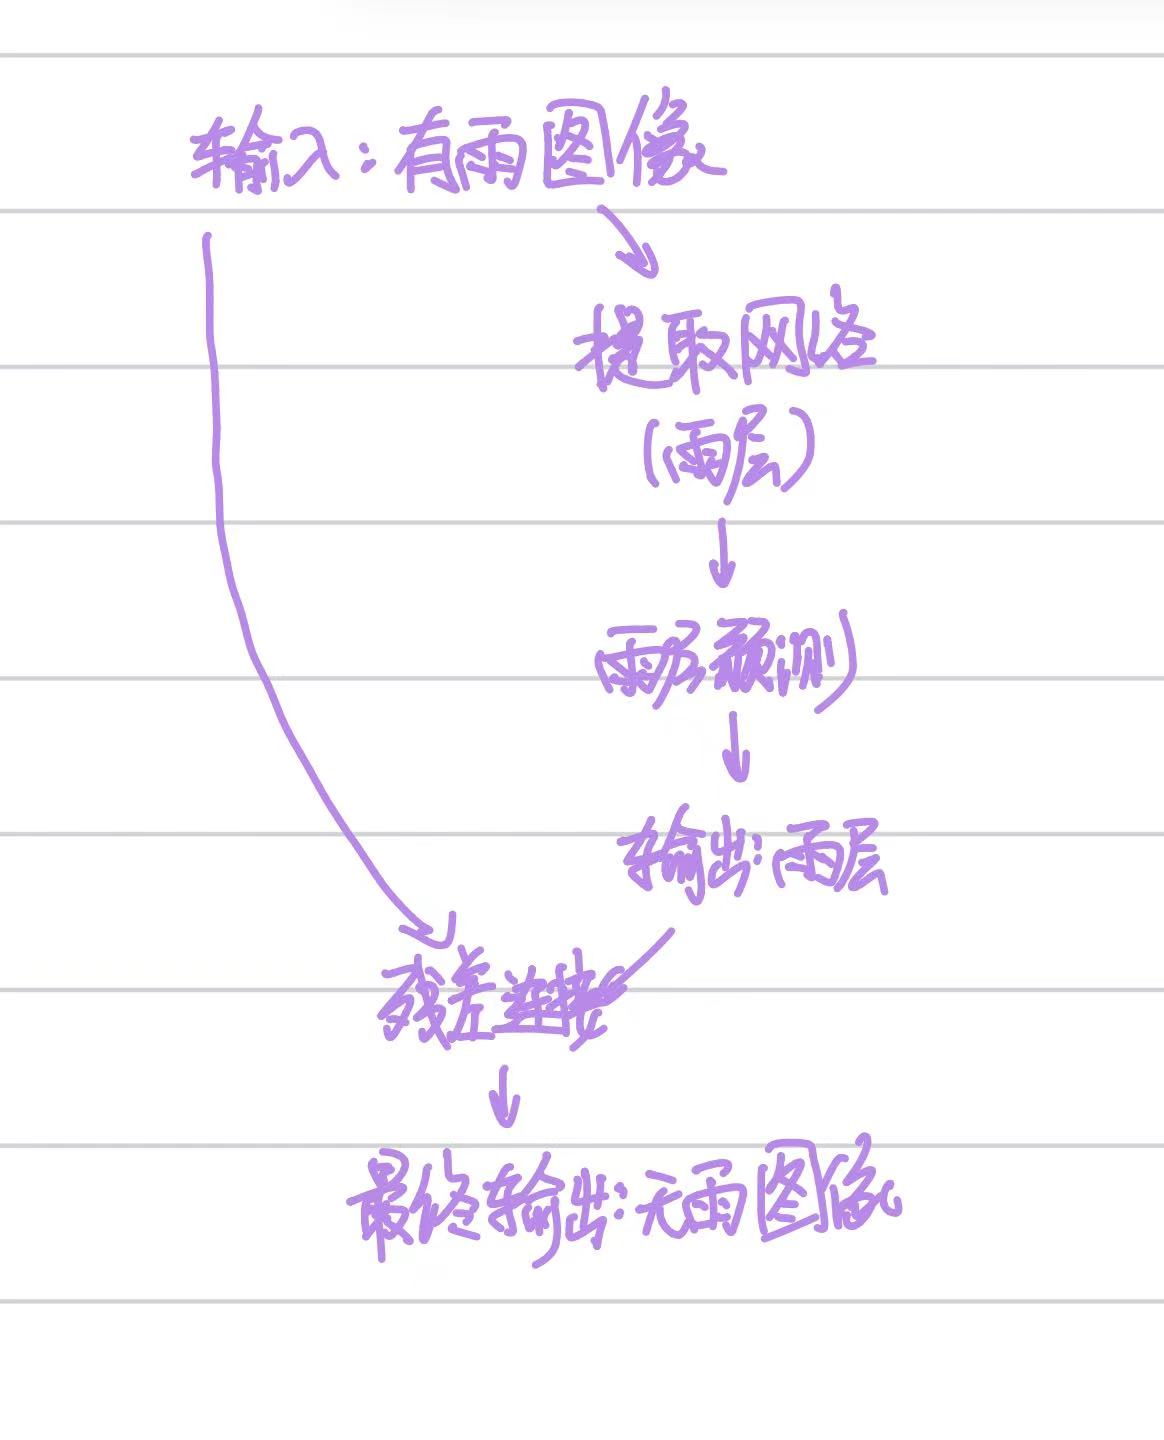 输入：有雨图像
提取网络
（雨层）
雨层预测）
输出：雨层
残差连接
最终输出：无雨图像